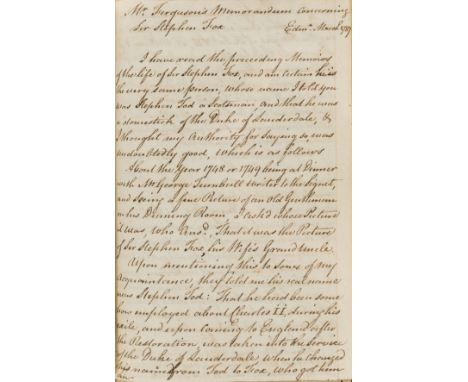 Mr. Ferguson's Memorandum concerning
Sir Stephen Fox
Edinr. March 1787
I have read the preceeding Memoirs
of the life of Sir Stephen Fox, and am certain he is
the very same person, whose name I told you
was Stephen Tod a Scotsman, and that he was
a domestick of the Duke of Lauderdale, &
I thought my Authority for saying so was
undoubtedly good, which is as follows
About the Year 1748 or 1749 being at Dinner
with Mr. George Turnbull Writer to the Signet,
and seeing a fine Picture of an Old Gentleman
in his Dinning Room, I ask'd whose Picture
it was, who Ansd. That it was the Picture
of Sir Stephen Fox, his Wife's Grand Uncle.
Upon mentioning this to some of my
Acquaintance, they told me his real name
was Stephen Tod: That he had been some
how employed about Charles II, during his
exile, and upon coming to England after
the Restoration, was taken into the Service
of the Duke of Lauderdale, when he changed
his name from Tod to Fox, who got him
an